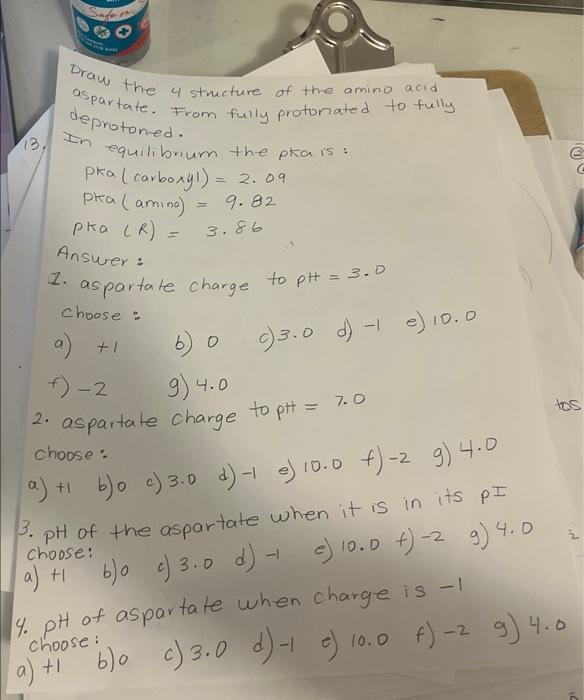 Safe
Draw the 4 structure of the amino acid
aspartate. From fully protonated to fully
deprotoned.
13. In equilibrium the pka is:
pka (carboxyl) = 2.09
pka (amino) = 9.82
pka (R) = 3.86
Answer:
1. aspartate charge to pH = 3.0
choose:
a) +1 b) 0 c) 3.0 d) -1 e) 10.0
f) -2 g) 4.0
2. aspartate charge to pH = 7.0
choose:
a) +1 b) 0 c) 3.0 d) -1 e) 10.0 f) -2 g) 4.0
3. pH of the aspartate when it is in its pI
choose:
a) +1 b) 0 c) 3.0 d) -1 e) 10.0 f) -2 g) 4.0
4. pH of aspartate when charge is -1
choose:
a) +1 b) 0 c) 3.0 d) -1 e) 10.0 f) -2 g) 4.0
2
tos